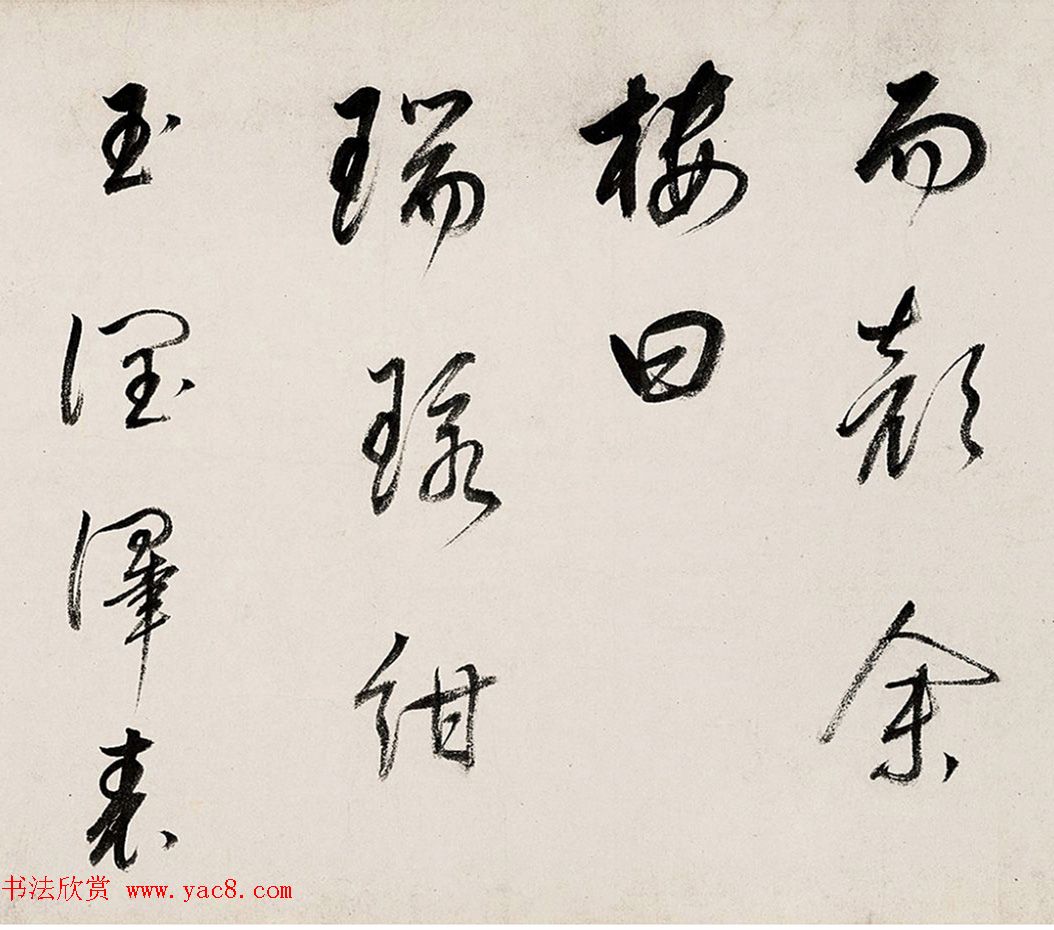 而顏余
樓曰
瑞紺
玉潤澤表
书法欣赏 www.yac8.com